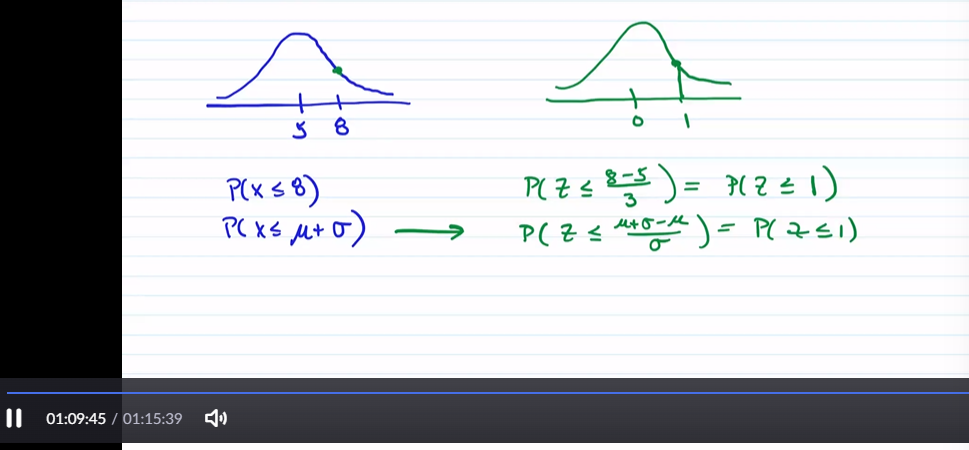 5 8
0 1
P(x ≤ 8)
P(z ≤ (8-5)/3) = P(z ≤ 1)
P(x ≤ μ+σ) → P(z ≤ (μ+σ-μ)/σ) = P(z ≤ 1)
01:09:45 / 01:15:39